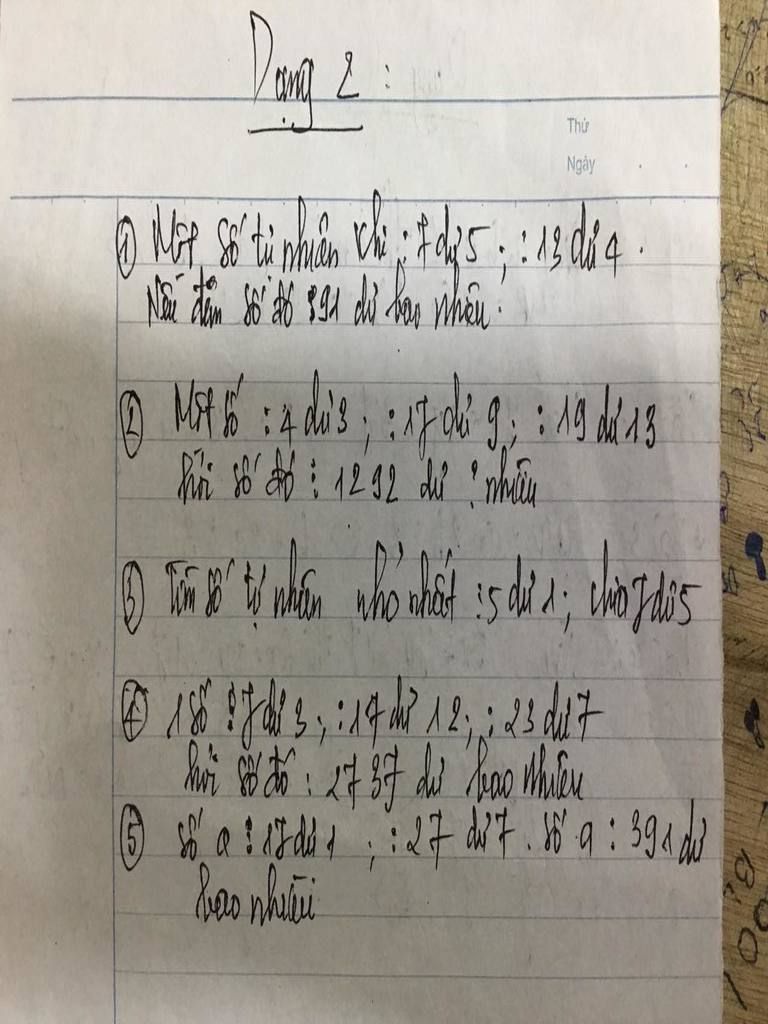 Dạng 2 :
Thứ
Ngày
① Một số tự nhiên khi : 7 dư 5 ; : 13 dư 4 .
Nếu đem số đó : 91 dư bao nhiêu .
② Một số : 4 dư 3 ; : 17 dư 9 ; : 19 dư 13
hỏi số đó : 1292 dư ? nhiêu
③ Tìm số tự nhiên nhỏ nhất : 5 dư 1 ; chia 7 dư 5
④ 1 số : 7 dư 3 ; : 17 dư 12 ; : 23 dư 7
hỏi số đó : 2737 dư bao nhiêu
⑤ số a : 17 dư 1 ; : 27 dư 7 . số a : 391 dư
bao nhiêu